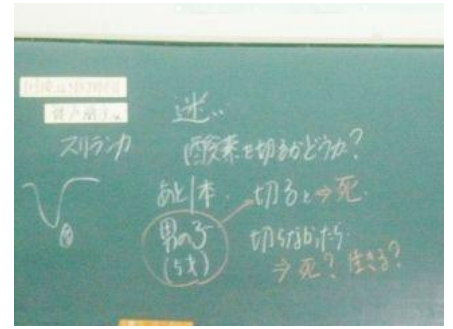 迷い
スリランカ
酸素を切るかどうか?
あと1本. 切ると⇒死.
男の子
(5才)
切らなかったら
⇒死? 生きる?